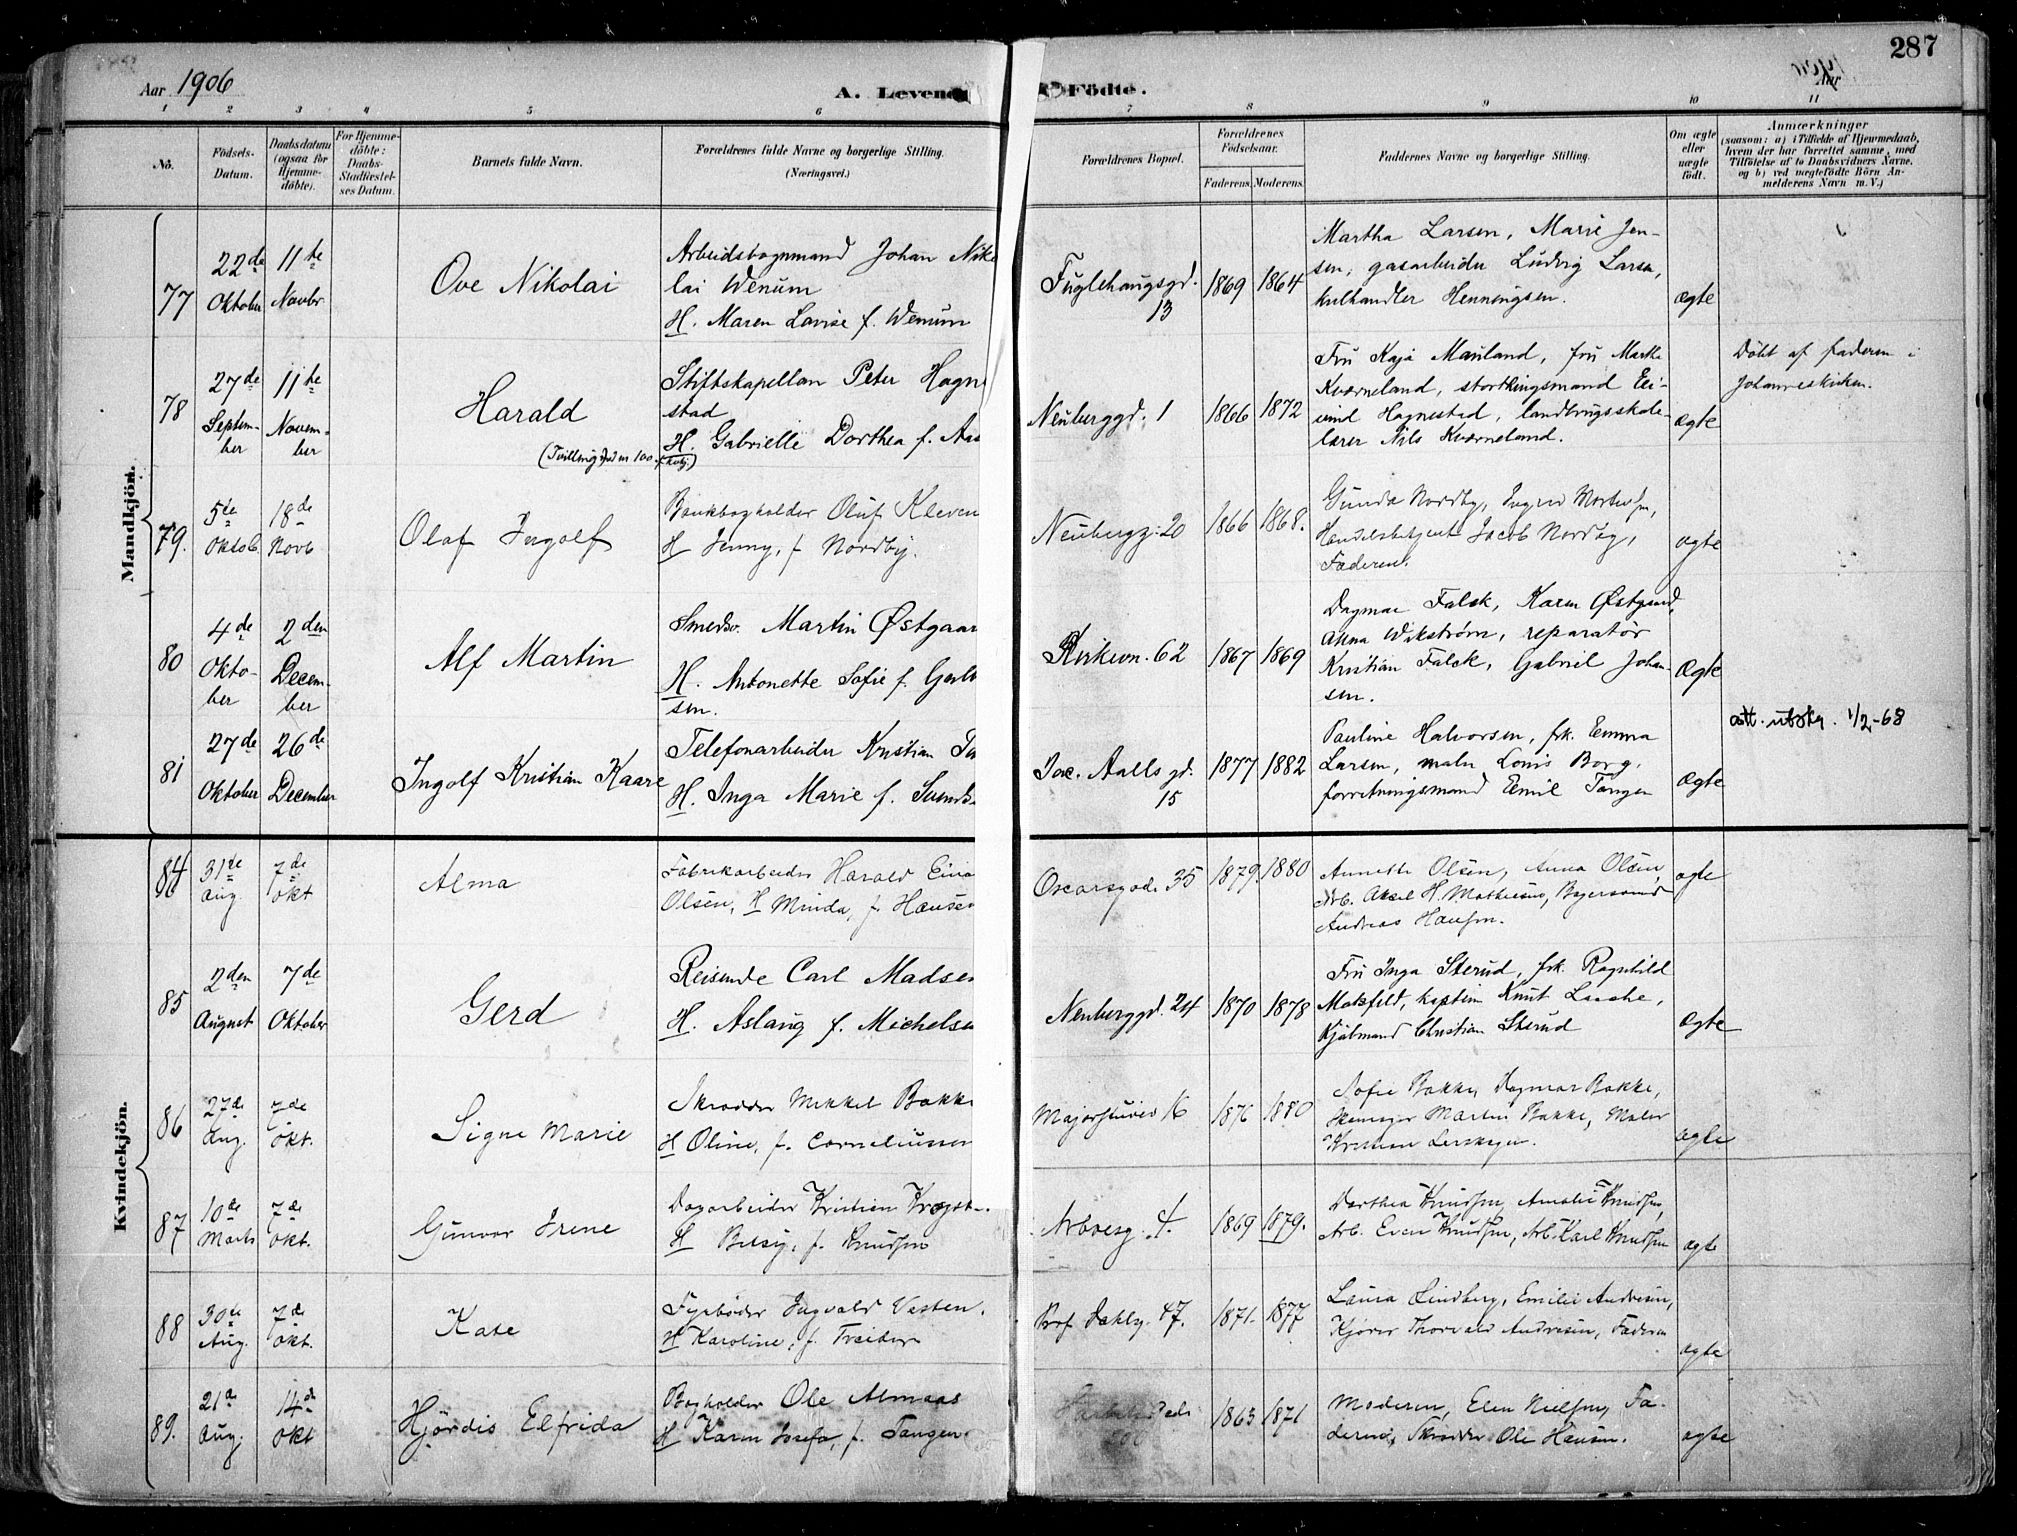 287
Aar 1906
A. Levende
Födte.
Aar
1 2 3 4 5 6 7 8 9 10 11
No.
Födsels-Datum.
Daabsdatum (ogsaa for Hjemmedöbte).
For Hjemmedöbte: Daabs-Stadfæstelses Datum.
Barnets fulde Navn.
Forældrenes fulde Navne og borgerlige Stilling.
(Næringsvei.)
Forældrenes Bopæl.
Forældrenes Födselsaar.
Faderens. Moderens.
Faddernes Navne og borgerlige Stilling.
Om ægte eller uægte födt.
Anmærkninger
(saasom: a) i Tilfælde af Hjemmedaab,
hvem der har forrettet samme, med
Tilföielse af to Daabsvidners Navne.
og b) ved uægtefödte Börn Anmelderens Navn m. V.)
Mandkjön.
77
22de Oktober
11te Novbr
Ove Nikolai
Arbeidsvognmand Johan Niko
lai Wenum
H. Maren Lovise f. Wenum
Fuglehaugsgd. 13
1869 1864
Martha Larsen, Marie Jen-
sen, gasarbeider Ludvig Larsen,
kulhandler Henningsen.
ægte
78
27de September
11te November
Harald
(Tvilling
Stiftskapellan Peter Hogne
stad
H. Gabrielle Dorthea f. Aas
Neuberggd. 1
1866 1872
Fru Kaja Mauland, fru Marta
Kværneland, stortingsmand Ei-
vind Hognestad, landbrugsskole-
lærer Nils Kværneland.
ægte
Döbt af faderen i
Johanneskirken.
79.
5te Oktob.
18de Novb
Olaf Ingolf
Bankbogholder Oluf Kleven
H Jenny, f Nordby.
Neubergg. 20
1866 1868.
Gunda Nordby, Ingrid
Handelsbetjent Jacob Nordby,
Faderen.
ægte
80
4de Oktober
2den December
Alf Martin
Smedsv. Martin Østgaar
H. Antonette Sofie f.
sen.
Kirkevn. 62
1867 1869
Dagmar Falck, Karen Østgaard,
Anna Wikström, reparatör
Kristian Falck, Gabriel Johan-
sen.
Ægte
81
27de Oktober
26de December
Ingolf Kristian Kaare
Telefonarbeider Kristian
H. Inga Marie f.
Jac. Aalls gd. 15
1877 1882
Pauline Halvorsen, frk. Emma
Larsen, maler Louis Borg,
forretningsmand Emil Tangen
Ægte
att. utskr. 1/2-68
Kvindekjön.
84
31te Aug.
7de okt
Alma
Fabrikarbeider Harald Eina
Olsen, H Minda, f. Hansen
Oscarsgade 35
1879. 1880
Annette Olsen, Anna Olsen
Arb. Aksel H. Mathiesens,
Andreas Hansen.
ægte
85
2den August
7de Oktober
Gerd
Reisende Carl Madsen
H. Aslaug f. Michelsen
Neuberggd. 24
1870 1878
Fru Inga Sterud, frk. Ragnhild
Moksfeld, kaptein Knut Lasche,
Kjöbmand Christian Sterud
Ægte
86
27de Aug.
7de okt.
Signe Marie
Skrædder Mikkel Bakke
H Oline, f. Corneliussen
Majorstuvei 16
1876 1880
Sofie Bakke, Dagmar Bakke,
Martin Bakke, Maler
Kristian
ægte
87
10de Marts
7de okt.
Gunvor Irene
Dagarbeider Kristian
H Betsy, f. Knudsen
Arbosg. 4.
1869 1879.
Dorthea Knudsen, Amalie Knudsen,
Arb. Even Knudsen, Arb. Karl Knudsen
ægte
88
30te Aug.
7de okt.
Kate
Fyrböder Ingvald Vesten.
H Karoline, f.
Prof. Dahlsg. 47.
1871. 1877
Laura Lindberg, Emilie Andresen,
Kjörer Thorvald Andresen, Faderen
ægte
89.
21de Aug.
14de okt
Hjördis Elfrida
Bogholder Ole Almaas
H Karen Josefa, f. Tangen.
1863 1871
Moderen, Elen Nielsen, Fa-
deren, Skrædder Ole Hansen.
ægte